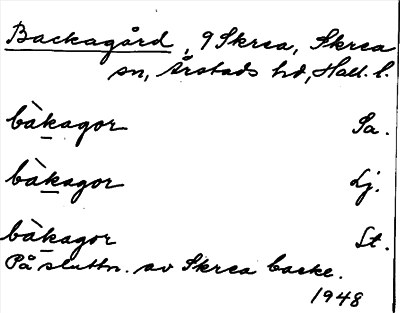 Backagård, 9 Skrea, Skrea
sn, Årstads hd, Hall. l.
bàkagor Sa.
bàkagor Lj.
bàkagor St.
På sluttn. av Skrea backe.
1948